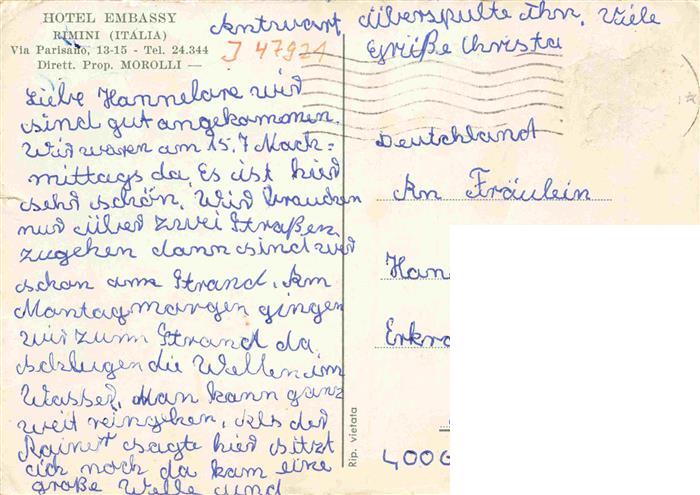 HOTEL EMBASSY
RIMINI (ITÁLIA)
Via Parisano, 13-15 - Tel. 24.344
Dirett. Prop. MOROLLI —
J 47921
Antwart, überspulte Ihn, Viele
Grüße Christa
Liebe Hannelare wir
sind gut angekammen.
Wir waren am 15.7 Nach=
mittags da. Es ist hier
sehr schön. Wir brauchen
nur über zwei Straßen
zugehen dann sind wir
schan am Strand. Am
Mantagmargen gingen
wir zum Strand da
schlugen die Wellen im
Wasser. Man kann ganz
weit reingehen. Als der
Rainer sagte hier sitzt
ich nach da kam eine
große Welle und
Rip. vietata
Deutchland
An Fräulein
Han
Erkr
400